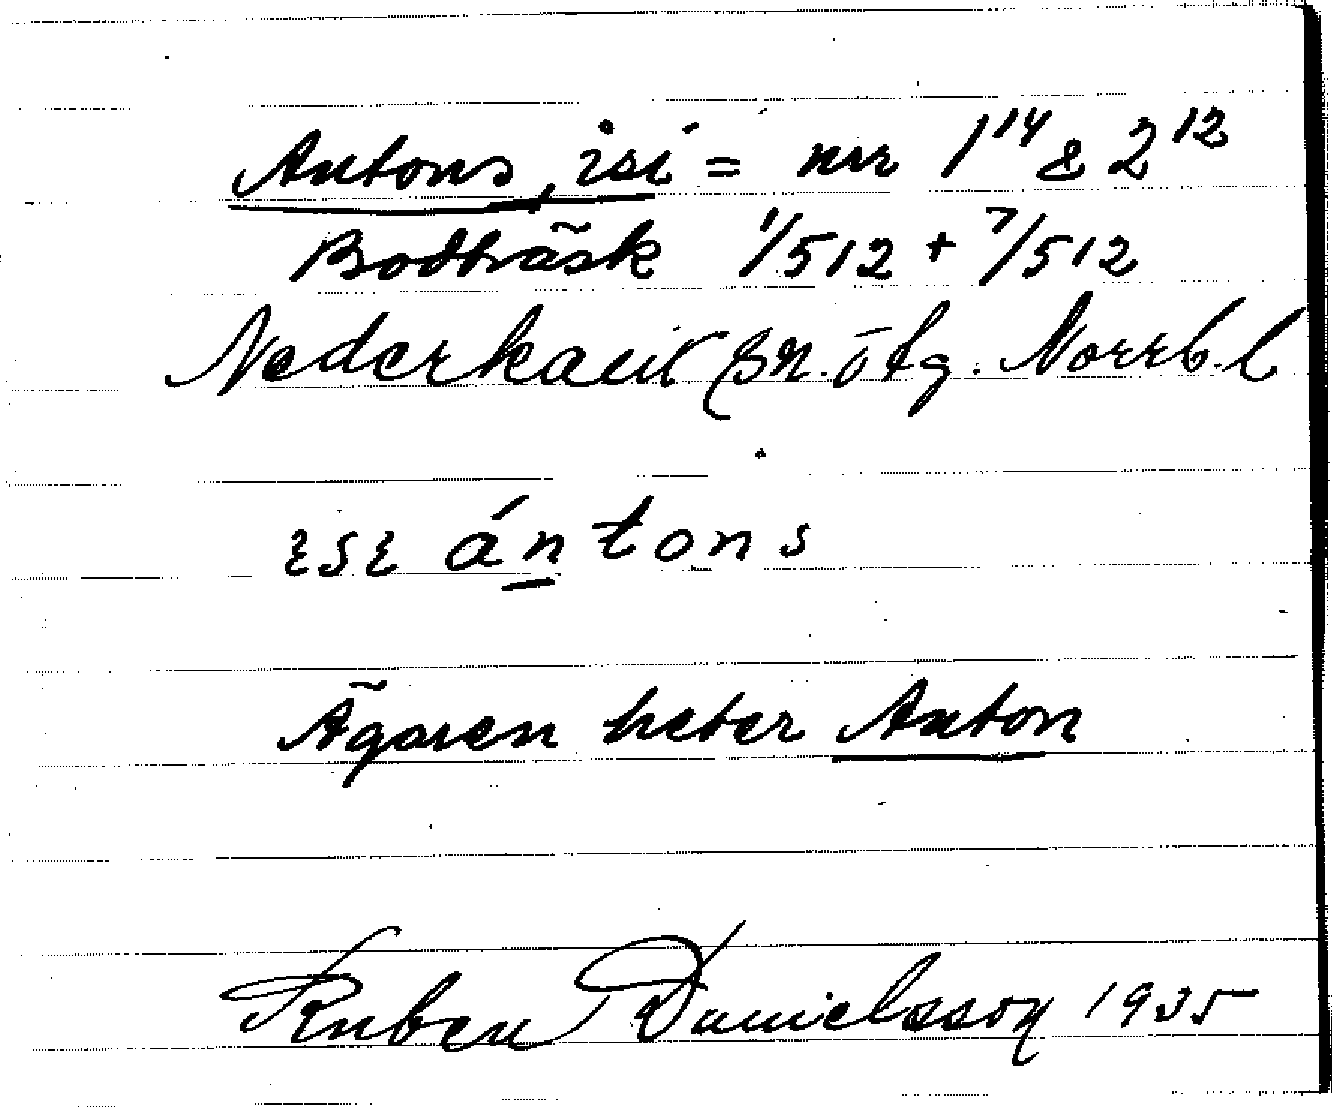 Antons, isi = nrr 1¹⁴ & 2¹²
Bodträsk 1/512 + 7/512
Nederkalix sn. ö tg. Norrb. l
ɩsɩ ántons
Ägaren heter Anton
Ruben Danielsson 1935